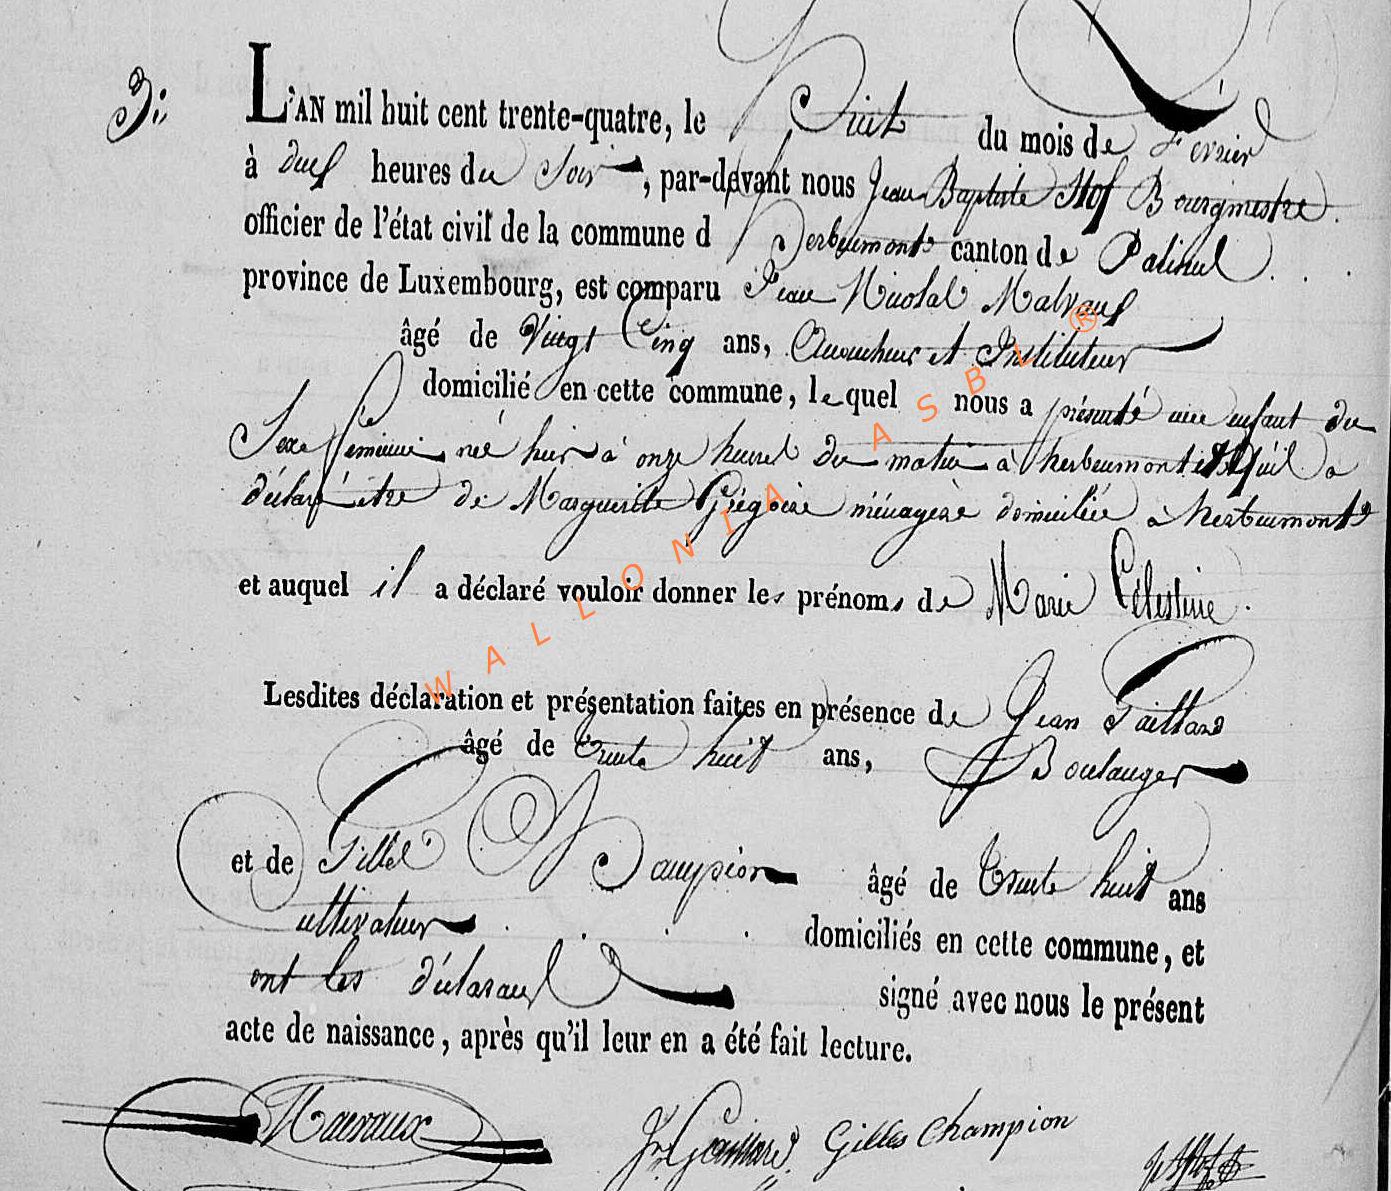 3.
L'AN mil huit cent trente-quatre, le huit du mois de Février
à deux heures du Soir, par-devant nous Jean Baptiste Hof Bourgmestre
officier de l'état civil de la commune d'herbeumont canton de Paliseul
province de Luxembourg, est comparu Jean Nicolas Malvaux
âgé de Vingt Cinq ans, Accoucheur et Instituteur
domicilié en cette commune, lequel nous a présenté un enfant du
Sexe féminin né hier à onze heures du matin à herbeumont et qu'il a
déclaré être de Marguerite Grégoire ménagère domiciliée à herbeumont
et auquel il a déclaré vouloir donner les prénoms de Marie Célestine.
Lesdites déclaration et présentation faites en présence de Jean Gaillard
âgé de trente huit ans, Boulanger
et de Gilles Champion âgé de trente huit ans
cultivateur domiciliés en cette commune, et
ont les déclarans signé avec nous le présent
acte de naissance, après qu'il leur en a été fait lecture.
Malvaux J. Gaillard Gilles Champion
WALLONIA ASBL ®